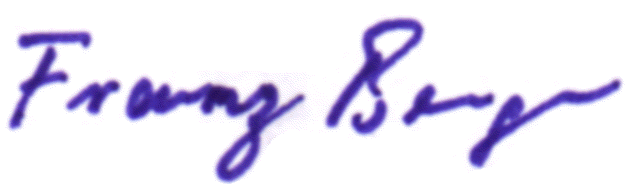 Franz Berg